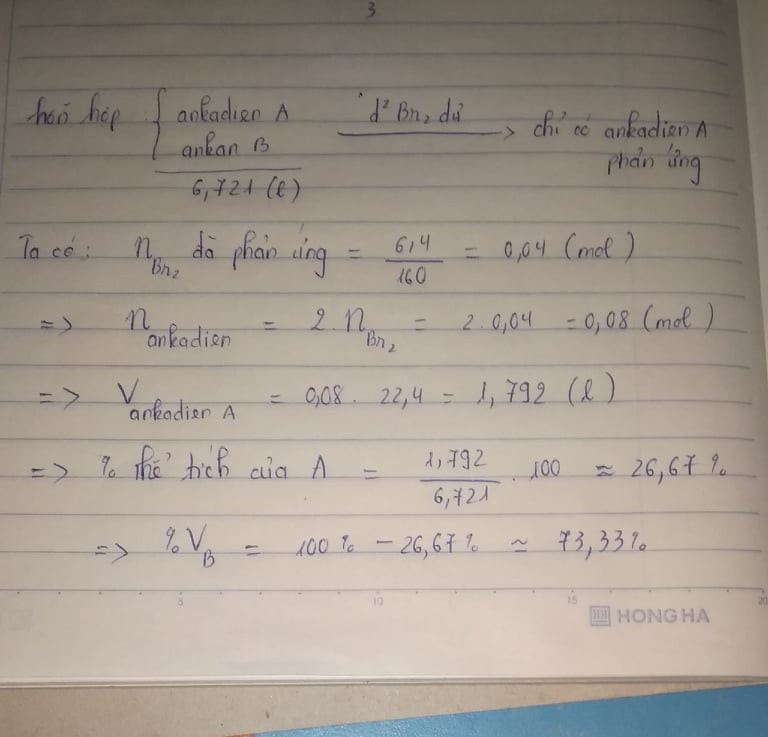 3
hỗn hợp { ankadien A
ankan B
d² Br₂ dư → chỉ có ankadien A
phản ứng
6,721 (l)
Ta có: n Br₂ đã phản ứng = 6,4 / 160 = 0,04 (mol)
=> n ankadien = 2. n Br₂ = 2.0,04 = 0,08 (mol)
=> V ankadien A = 0,08. 22,4 = 1,792 (l)
=> % thể tích của A = 1,792 / 6,721 . 100 ≈ 26,67 %
=> % V B = 100 % - 26,67 % ≈ 73,33 %
5 10 15 20
HH HONG HA